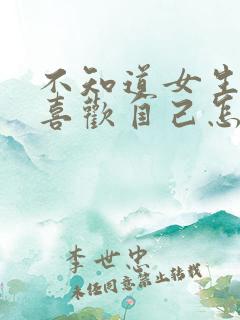 不知道女生
喜歡自己怎
李世忠
未经同意禁止转载